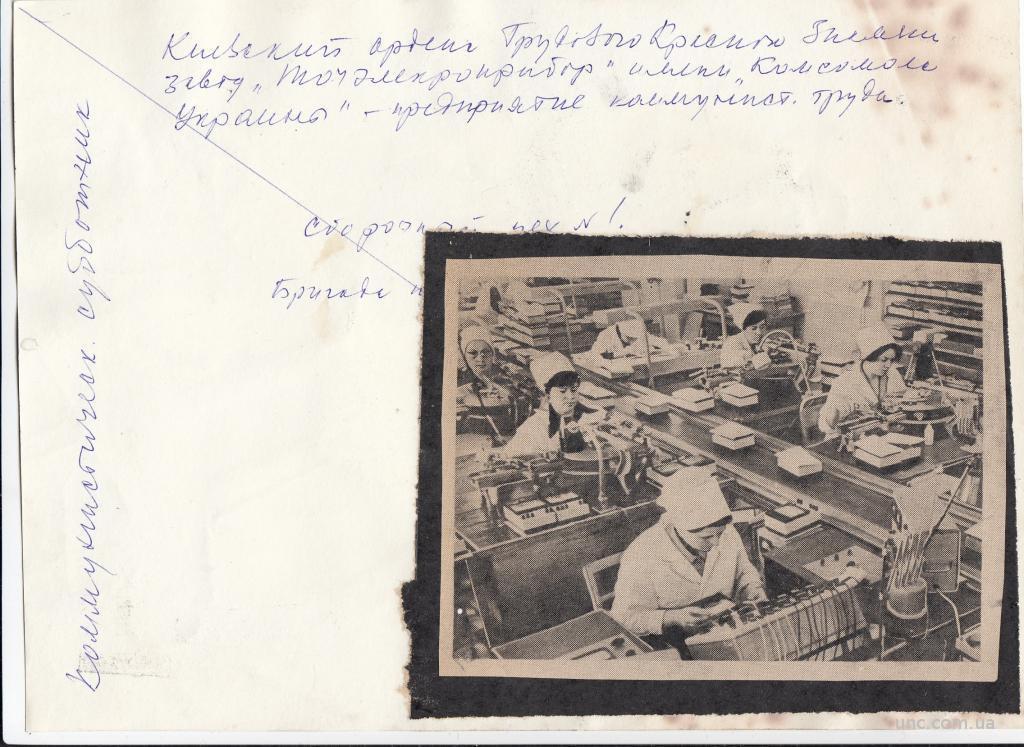 Киевский ордена Трудового Красного Знамени
завод „Точэлектроприбор" имени „Комсомола
Украины" – предприятие коммунист. труда.
Сборочный цех № 1
Бригада
Коммунистическ. субботник
unc.com.ua